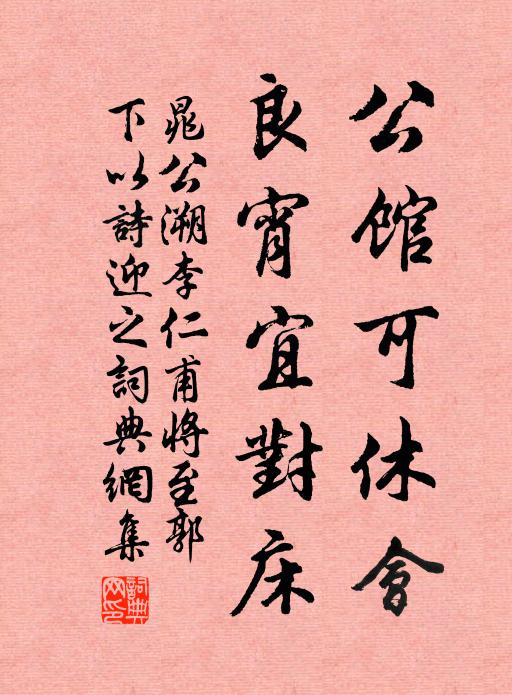 公館可休會
良宵宜對床
晁公溯李仁甫將至郭
下以詩迎之詞典網集
詞典
网印